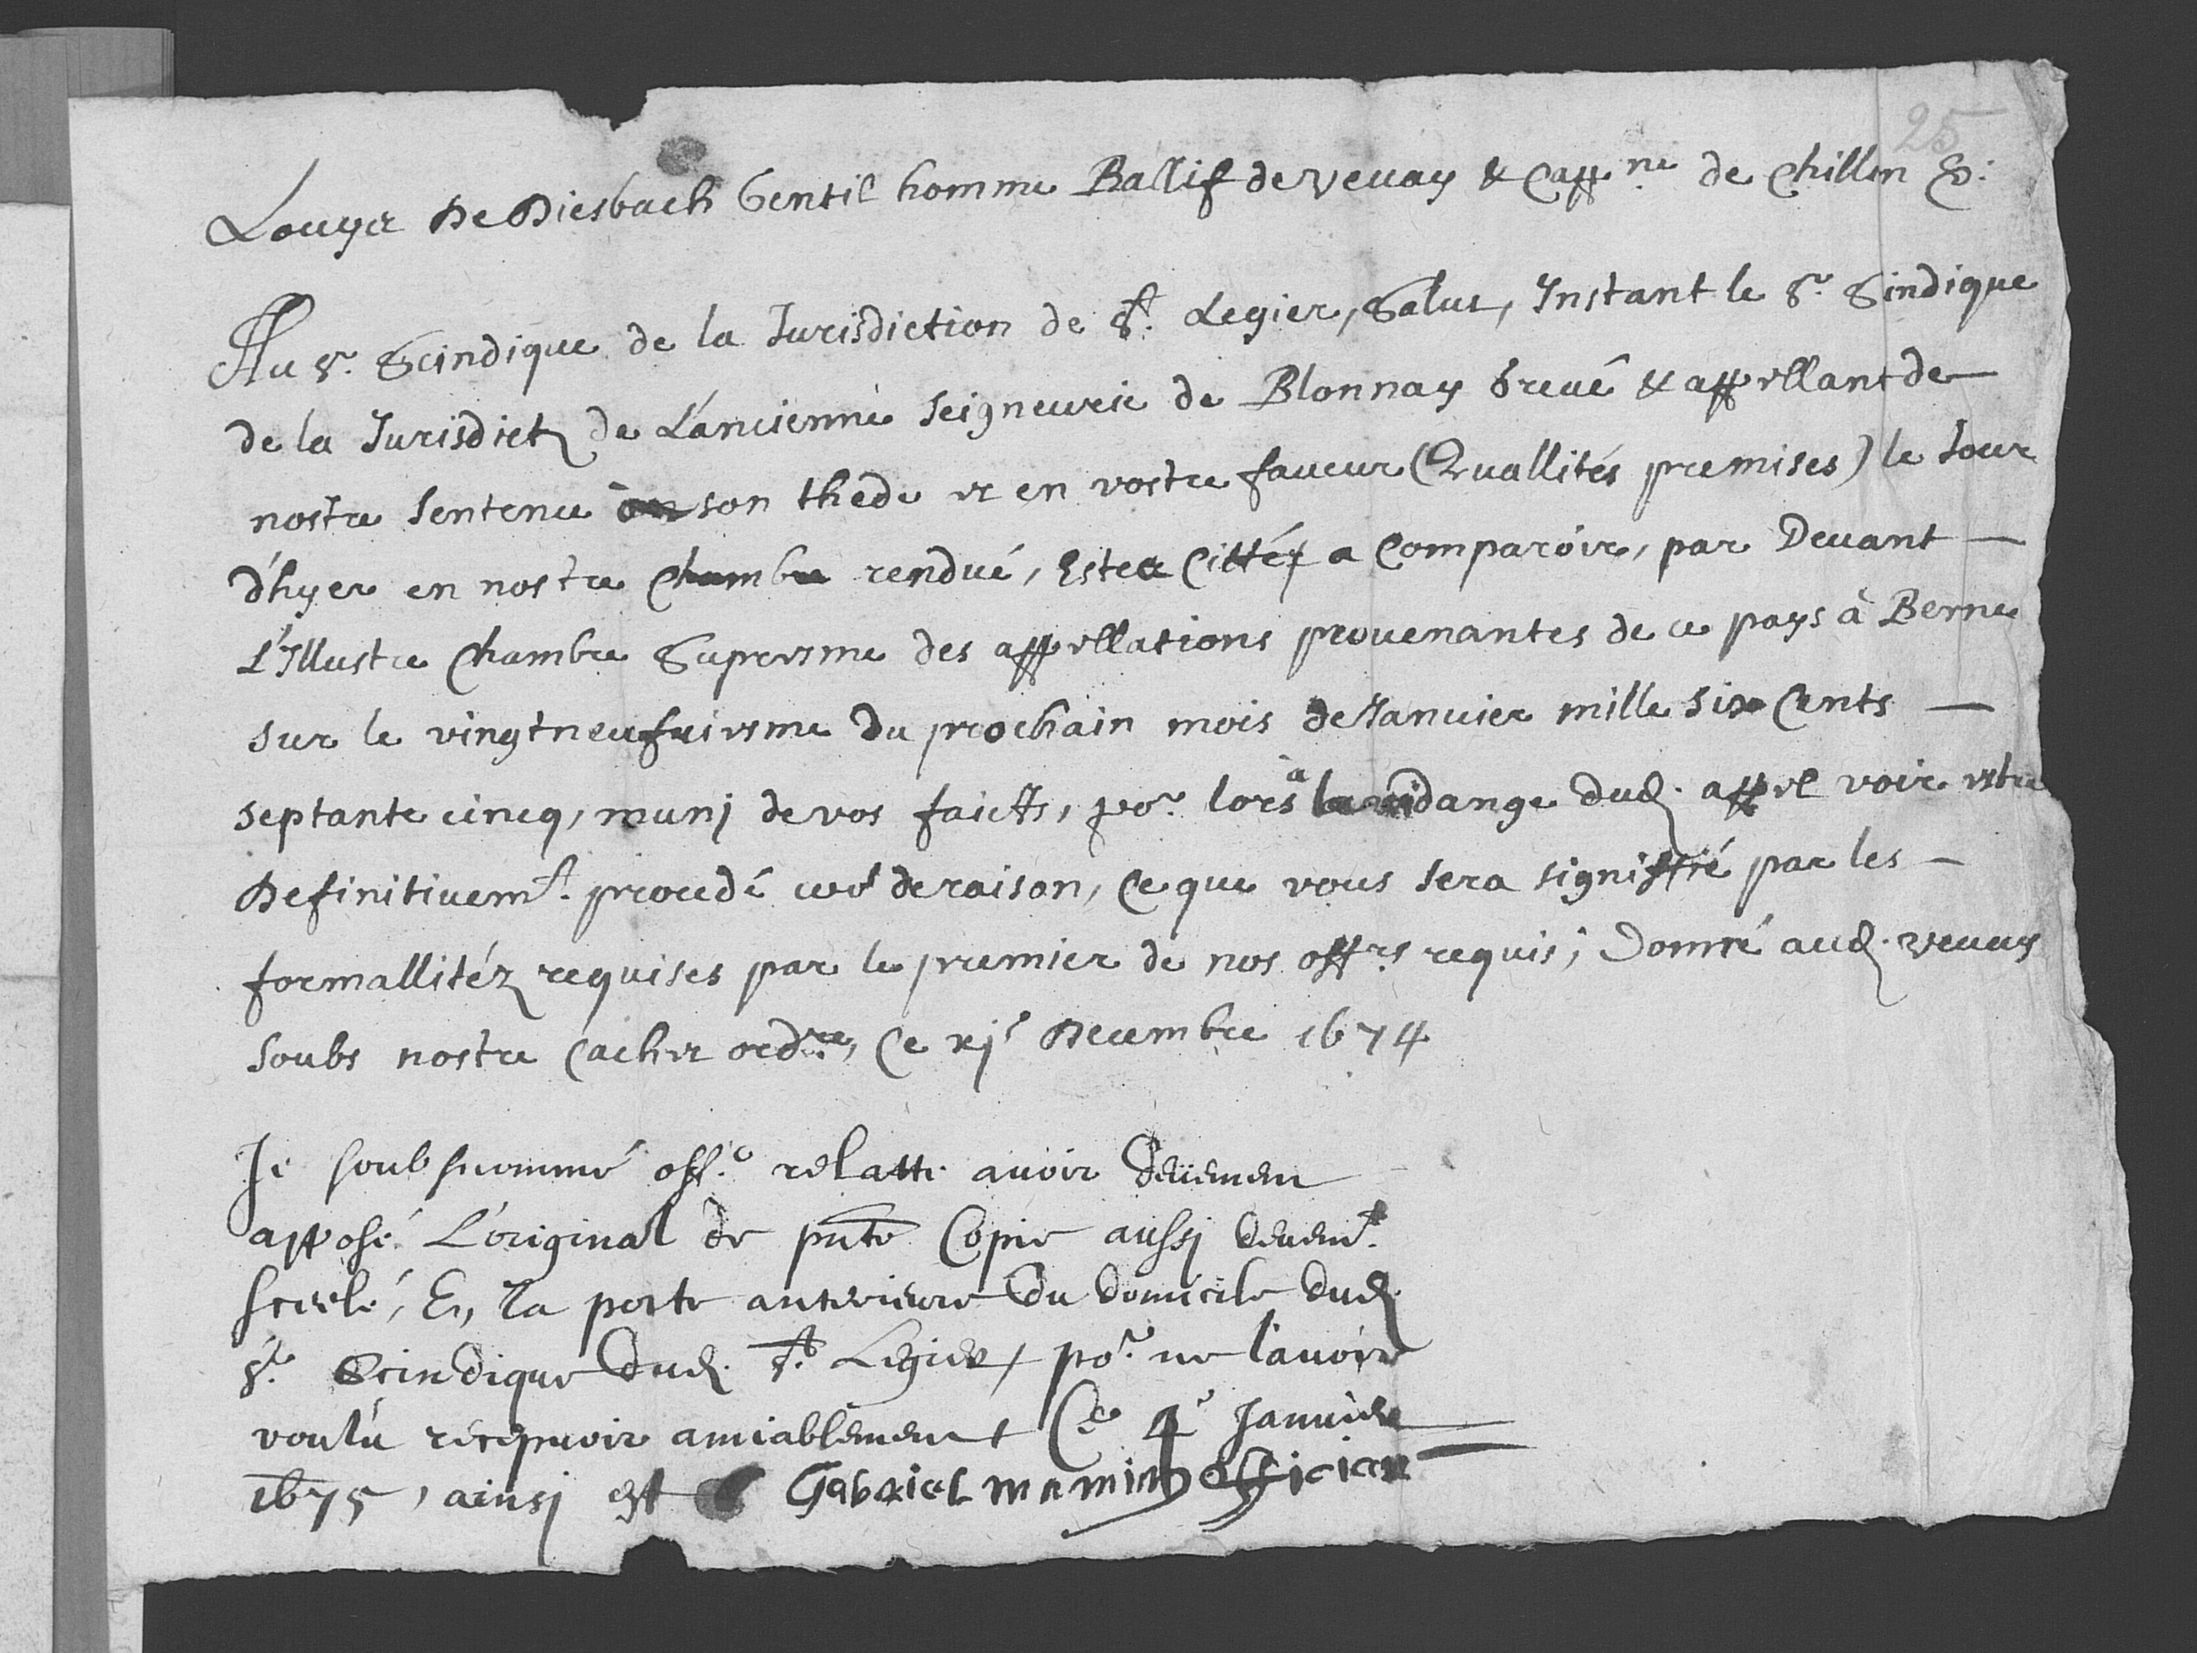 25
Louys De Diesbach Gentil homme Ballif de Vevay & Capp.ne de Chillon &.
Au Sr. Scindique de la Jurisdiction de St. Legier, Salut, Instant le Sr. Sindique
de la Jurisdict de L'ancienne Seigneurie de Blonnay Grevé & appellant de
nostre Sentence son thede et en vostre faveur (Quallités premises) le Jour
d'hyer en nostre Chambre rendué, Estes Cittéz a Comparoir, par Devant
L'Illustre Chambre Supresme des appellations provenantes de ce pays à Berne
sur le vingtneufviesme du prochain mois de Janvier mille Six Cents
septante cincq, munj de vos faicts, por. lors à la vidange dud. appel voir estre
Definitivemt. procedé coe de raison, Ce que vous sera signiffié par les
formallitéz requises par le premier de nos offrs requis; Donné aud. Vevay
soubs nostre Cachet ordre, Ce xje Decembre 1674
Je soubsnommé off.r relatte avoir deüement
apposé L'original de pnte Copie aussj deuemt.
sceelé, En la porte anterieure du domicile dud.
Sr. Scindique dud. St. Legier, por. ne l'avoir
voulu récepvoir amiablement Ce 4e Janvier
1675, ainsj est Gabriel mamin officier